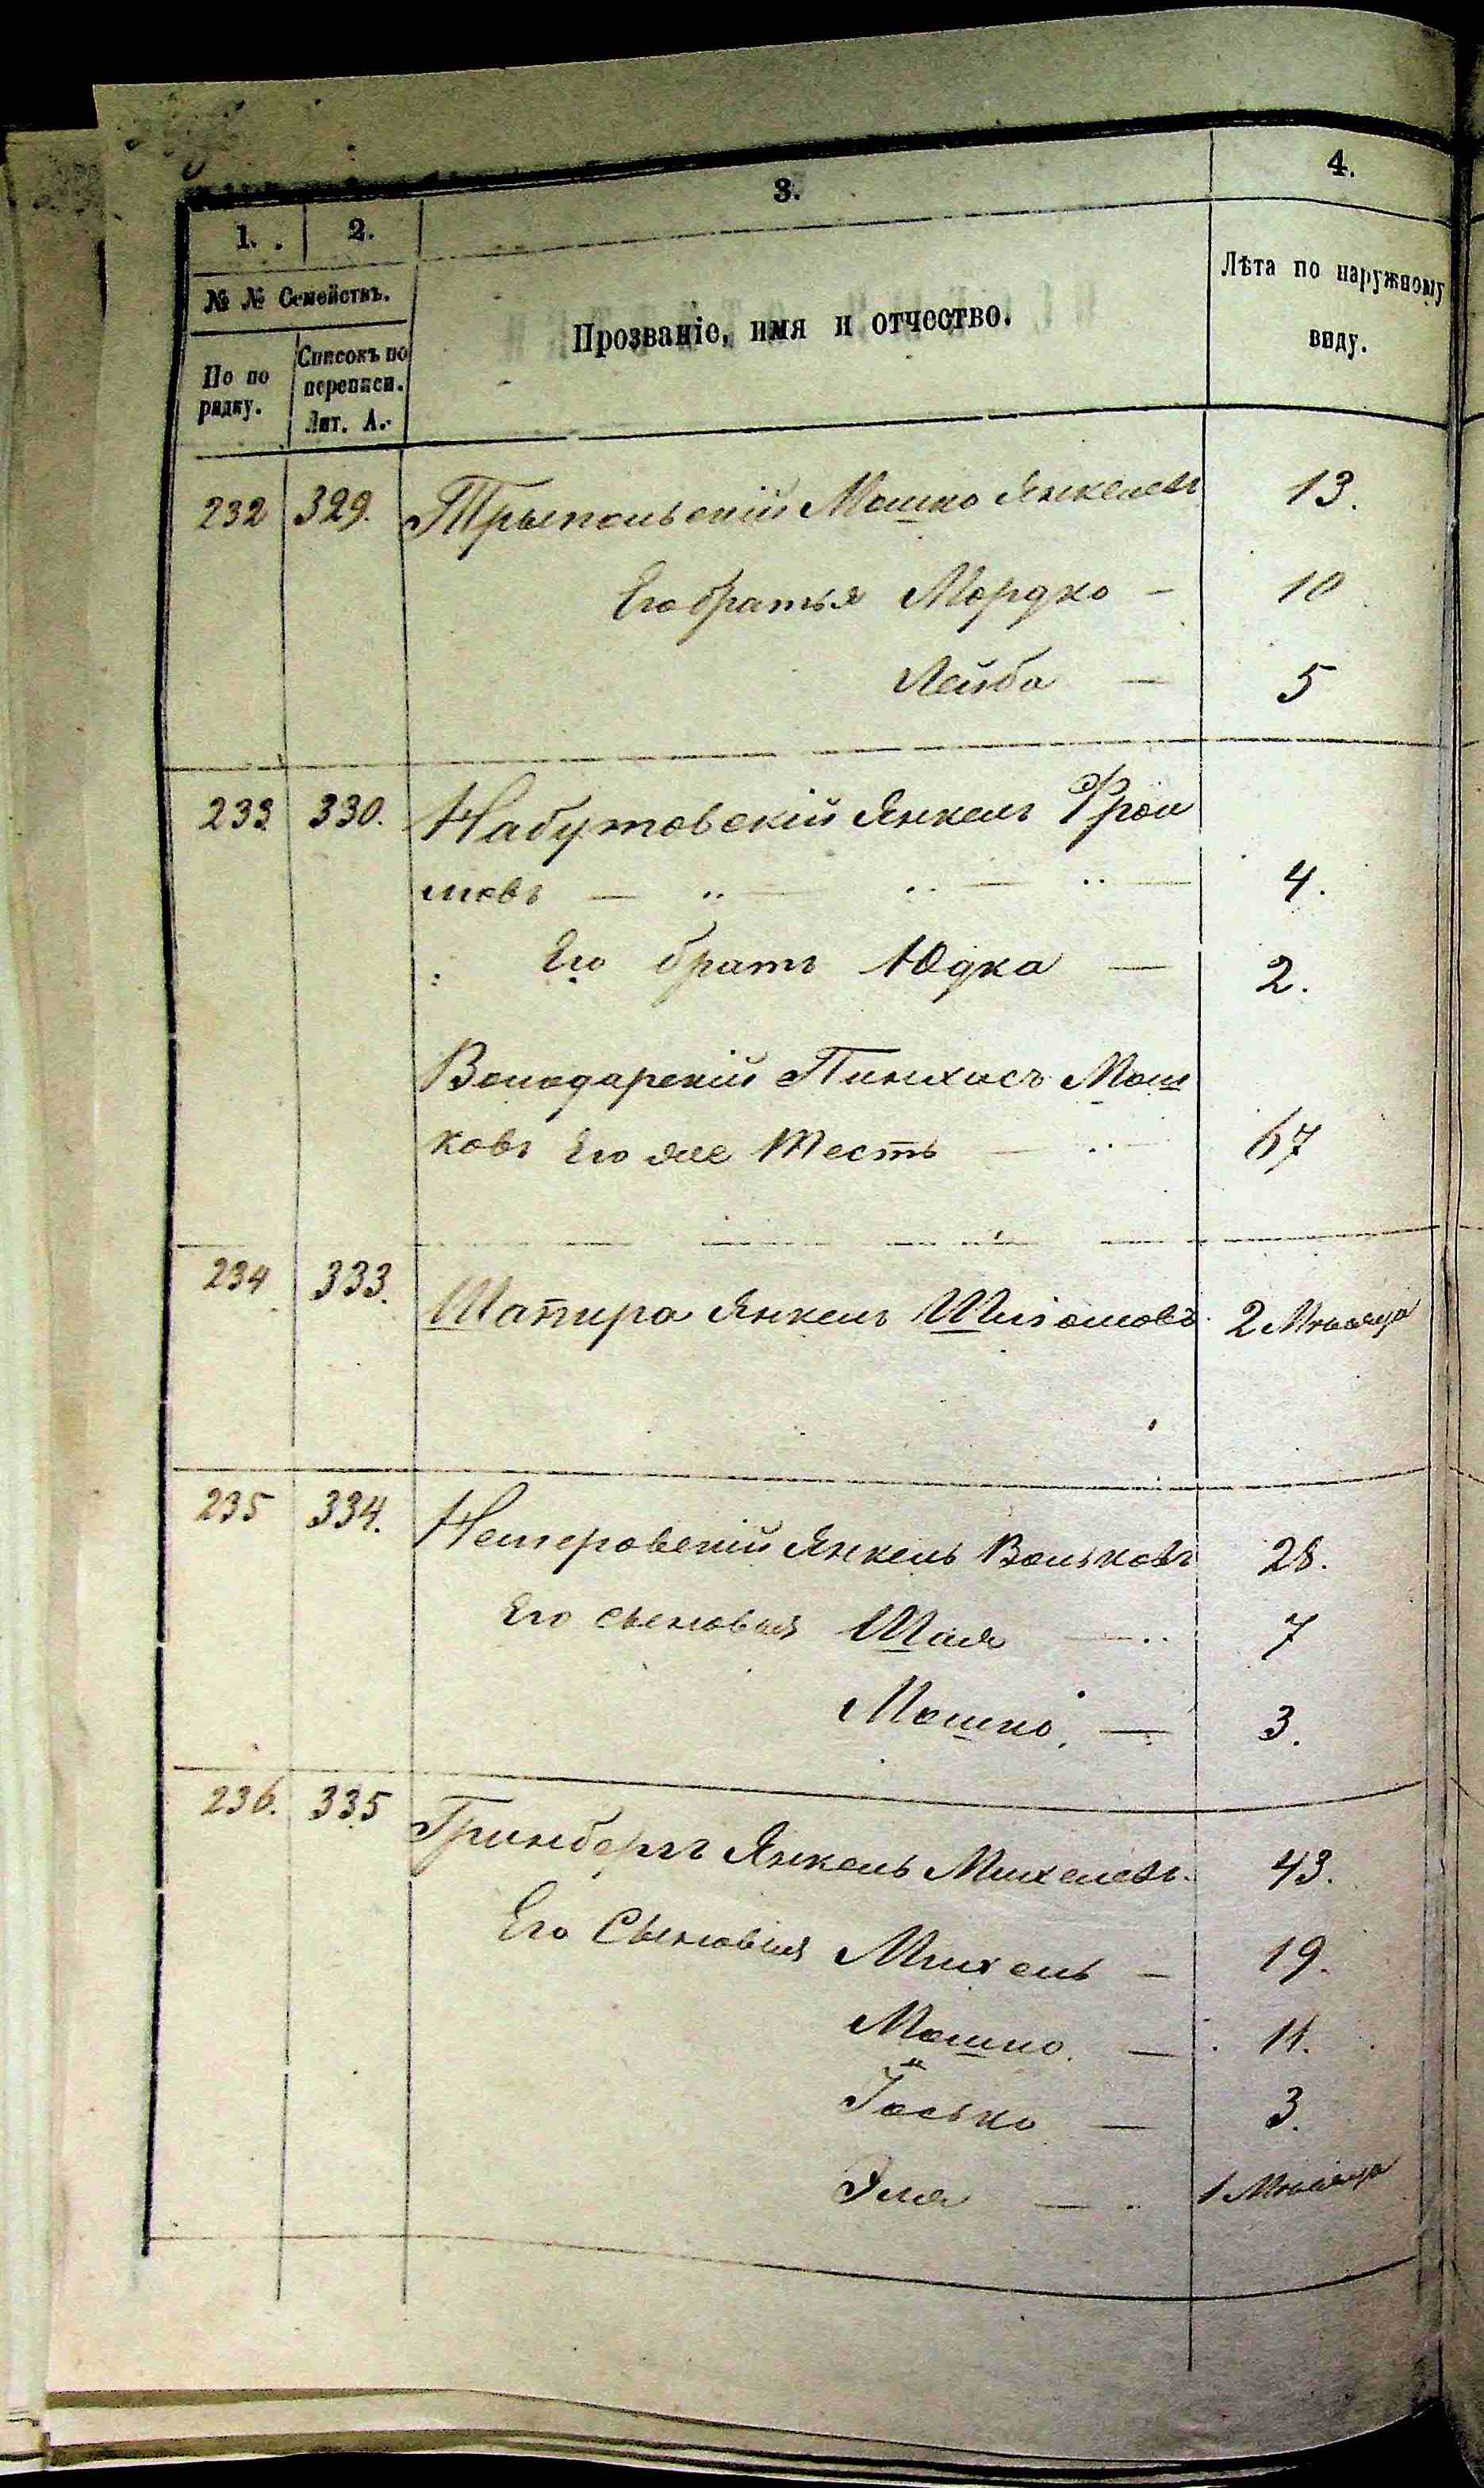 1. 2. 3. 4.
№ № Семействъ.
По по рядку.
Списокъ по переписи. Лит. А.
Прозваніе, имя и отчество.
Лѣта по наружному виду.
232 329. Трыпольскій Мошко Янкелевъ 13.
Его братья Мордко — 10
Лейба — 5
233 330. Набутовскій Янкель Фрои
мовъ — 4.
Его братъ Юдка — 2.
Володарскій Пинхасъ Мош
ковъ Его же Тесть — 67
234 333. Шапира Янкель Шліомовъ 2 Мѣсяца
235 334. Немеровскій Янкель Вольковъ 28.
Его сыновья Шая — 7
Мошко — 3.
236. 335 Гринбергъ Янкель Михелевъ. 43.
Его Сыновья Михель — 19.
Мошко — 11.
Іосько — 3.
Эля — 1 Мѣсяца